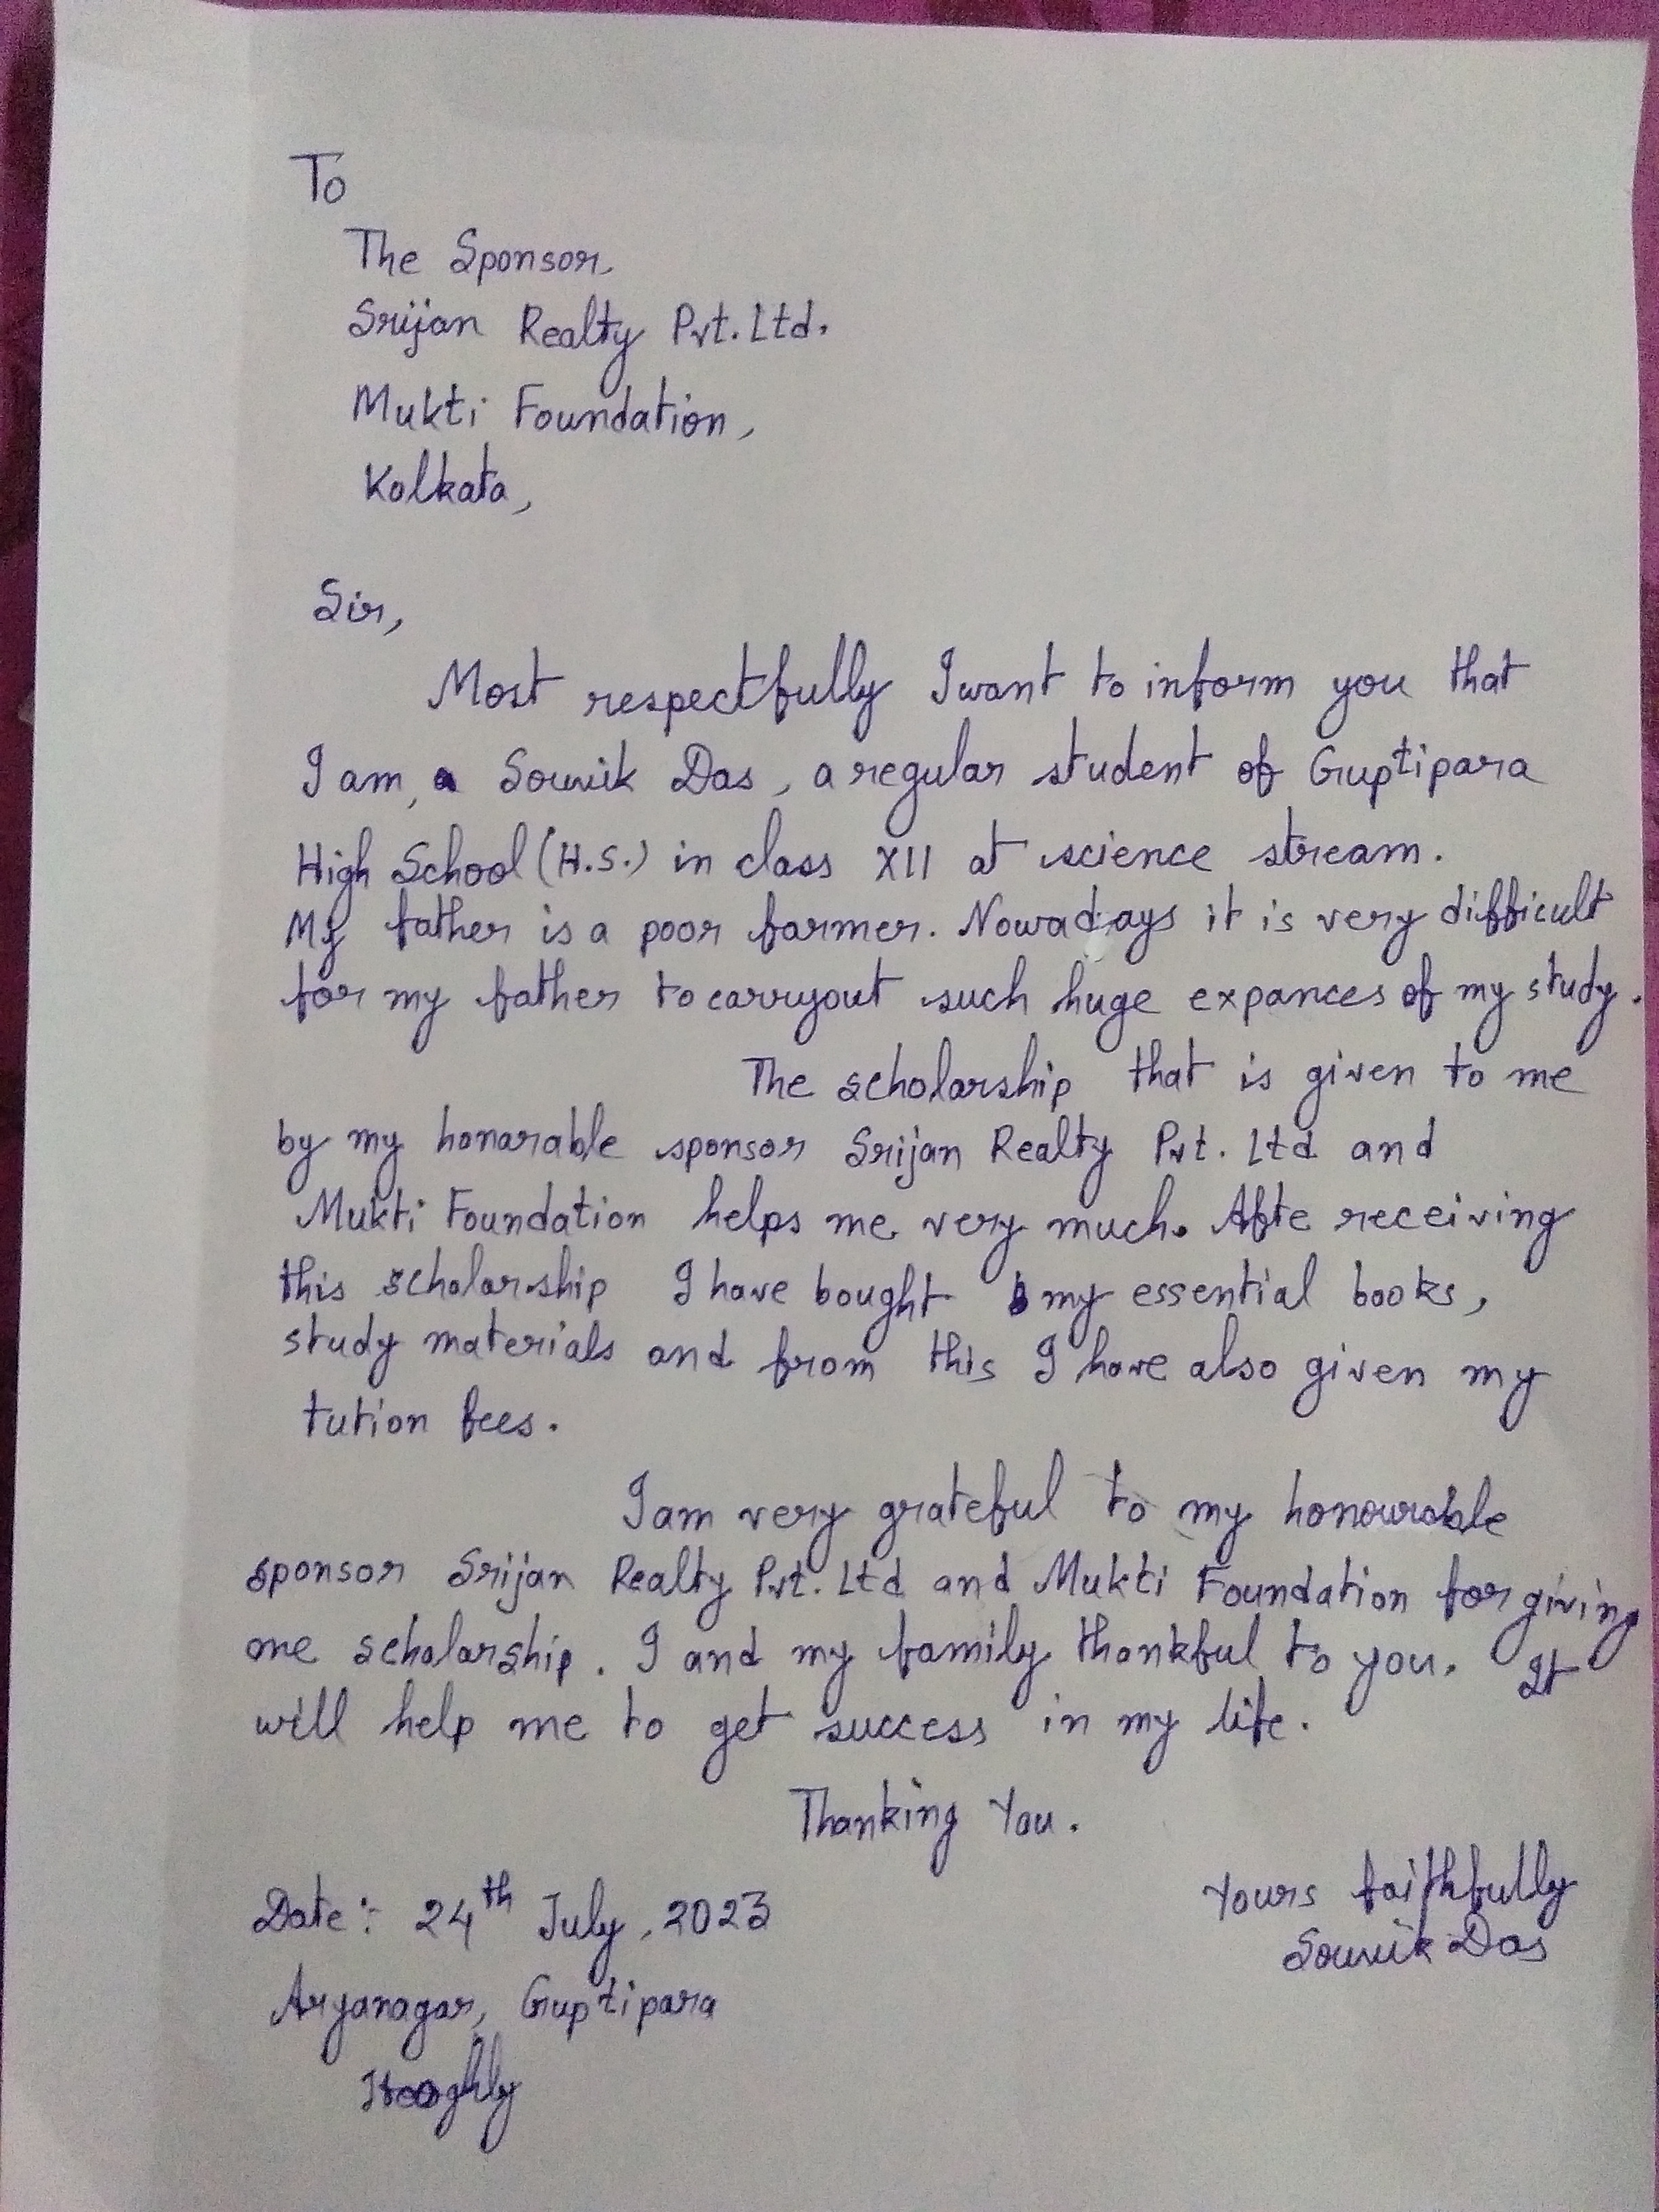 To
The Sponsor,
Srijan Realty Pvt. Ltd.
Mukti Foundation,
Kolkata,
Sir,
Most respectfully I want to inform you that
I am, a Souvik Das, a regular student of Guptipara
High School (H.S.) in class XII at science stream.
My father is a poor farmer. Nowadays it is very difficult
for my father to carryout such huge expances of my study.
The scholarship that is given to me
by my honarable sponsor Srijan Realty Pvt. Ltd and
Mukti Foundation helps me very much. Afte receiving
this scholarship I have bought my essential books,
study materials and from this I have also given my
tution fees.
I am very grateful to my honourable
sponsor Srijan Realty Pvt. Ltd and Mukti Foundation for giving
me scholarship. I and my family thankful to you. It
will help me to get success in my life.
Thanking You.
Yours faithfully
Souvik Das
Date: 24th July, 2023
Aryanagar, Guptipara
Hooghly